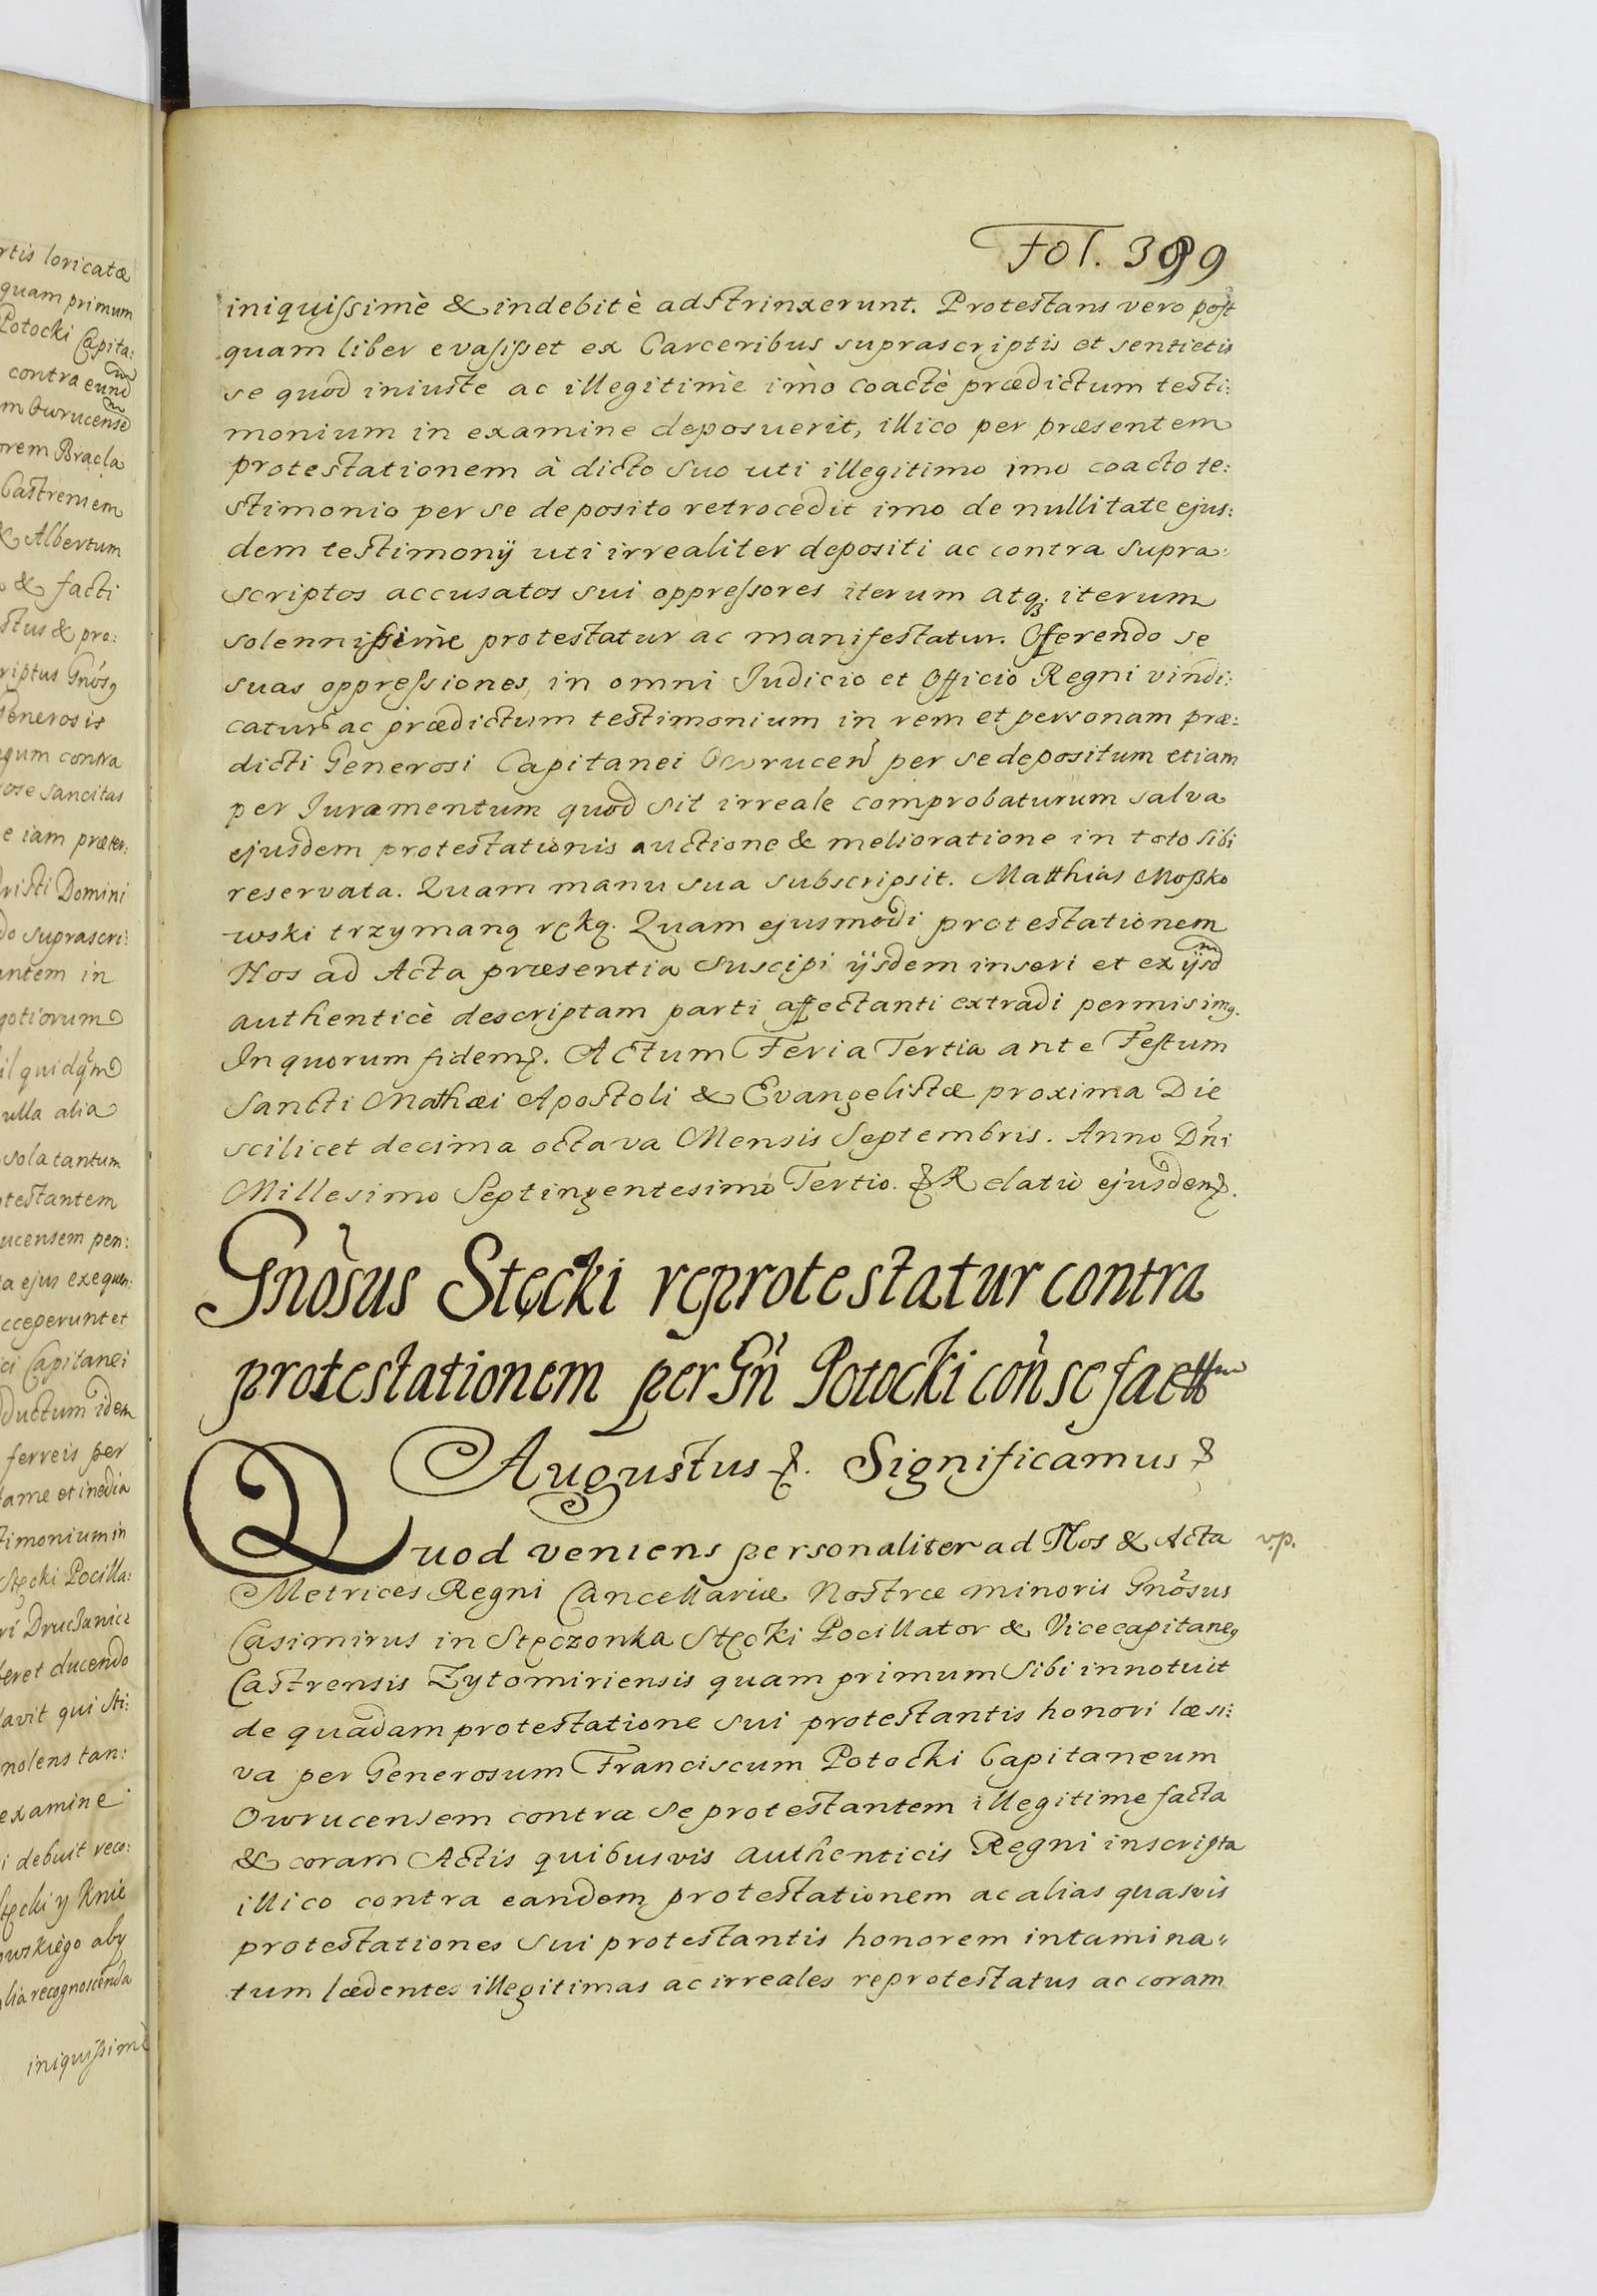 rtis loricatæ
quam primum
Potocki Capita:
contra eund
m Owrucense
orem Bracla
Castrensem
& Albertum
& facti
stus & pro:
riptus Gnos
Generosis
gum contra
ose sancitas
e iam præter:
Christi Domini
do suprascri:
antem in
gotiorum
il quidqm
ulla alia
sola tantum
otestantem
ucensem pen:
ta ejus exequen:
cceperunt et
ci Capitanei
ductum idem
ferreis per
fame et inedia
timonium in
Stęcki Pocilla:
ri Druckanie
feret ducendo
avit qui sti:
nolens tan:
examine
i debuit reco:
tęcki y Knie
owskiego aby
lia recognoscenda
iniquissimè
Fol. 399
iniquissimè & indebitè adstrinxerunt. Protestans vero post
quam liber evasisset ex Carceribus suprascriptis et sentietis
se quod iniuste ac illegitimè imò coactè prædictum testi:
monium in examine deposuerit, illico per præsentem
protestationem à dicto suo uti illegitimo imo coacto te:
stimonio per se deposito retrocedit imo de nullitate ejus:
dem testimonij uti irrealiter depositi ac contra supra:
scriptos accusatos sui oppressores iterum atq; iterum
solennissimè protestatur ac manifestatur. Offerendo se
suas oppressiones, in omni Judicio et Officio Regni vindi:
catur ac prædictum testimonium in rem et personam præ:
dicti Generosi Capitanei Owrucen per se depositum etiam
per Juramentum quod sit irreale comprobaturum salva
ejusdem protestationis auctione & melioratione in toto sibi
reservata. Quam manu sua subscripsit. Matthias Moßko
wski trzymaną ręką. Quam ejusmodi protestationem
Nos ad Acta præsentia suscipi ijsdem inseri et ex ijsd
authenticè descriptam parti affectanti extradi permisimg.
In quorum fidem &. Actum Feria Tertia ante Festum
Sancti Mathæi Apostoli & Evangelistæ proxima Die
scilicet decima octava Mensis Septembris. Anno Dni
Millesimo Septingentesimo Tertio. & Relatio ejusdem &.
Gnosus Stęcki reprotestatur contra
protestationem per Gn Potocki con se factam
Augustus &. Significamus &
Quod veniens personaliter ad Nos & Acta
vp.
Metrices Regni Cancellariæ Nostræ minoris Gnosus
Casimirus in Stęczonka Stęcki Pocillator & Vicecapitaneg
Castrensis Zytomiriensis quam primum sibi innotuit
de quadam protestatione sui protestantis honori læsi:
va per Generosum Franciscum Potocki Capitaneum
Owrucensem contra se protestantem illegitime facta
& coram Actis quibusvis authenticis Regni inscripta
illico contra eandem protestationem ac alias quasvis
protestationes sui protestantis honorem intamina„
tum lædentes illegitimas ac irreales reprotestatus ac coram